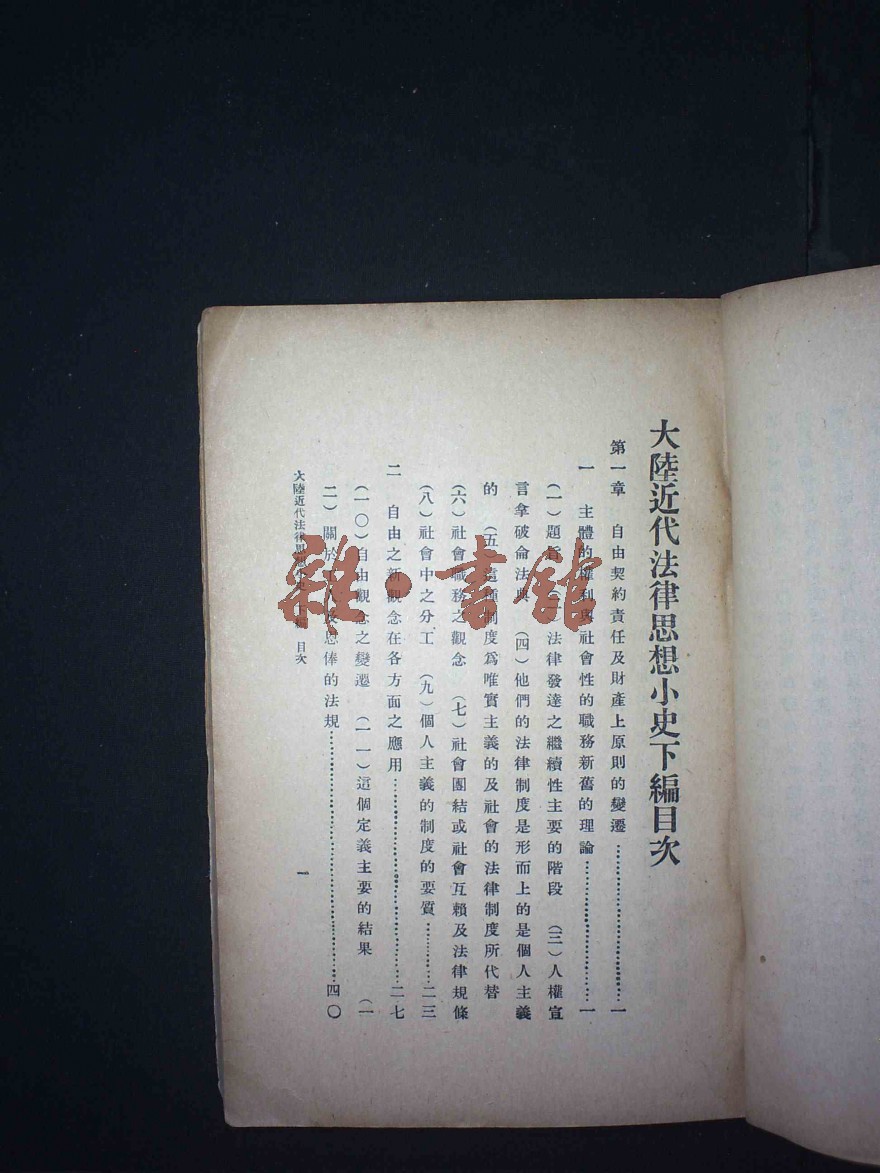 大陸近代法律思想小史下編目次
第一章 自由契約責任及財產上原則的變遷……一
一 主體的權利與社會性的職務新舊的理論……一
(一)題旨 (二)法律發達之繼續性主要的階段 (三)人權宣
言拿破侖法典 (四)他們的法律制度是形而上的是個人主義
的 (五)這種制度爲唯實主義的及社會的法律制度所代替
(六)社會職務之觀念 (七)社會團結或社會互賴及法律規條
(八)社會中之分工 (九)個人主義的制度的要質……二三
二 自由之新觀念在各方面之應用……二七
(一〇)自由觀念之變遷 (一一)這個定義主要的結果 (一
二)關於工人及恩俸的法規……四〇
大陸近代法律思想小史 下編 目次
一
雜·書館